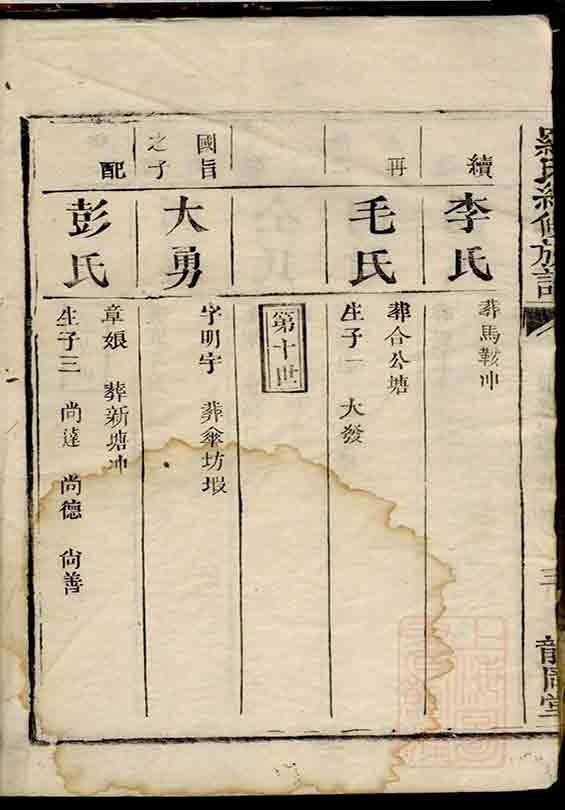 羅氏續修族譜
三
續
李氏
葬馬鞍冲
再
毛氏
葬合公塘
生子一 大發
第十世
國旨
之子
大勇
字明宇 葬傘坊塅
配
彭氏
章娘 葬新塘冲
生子三 尚達 尚德 尚善